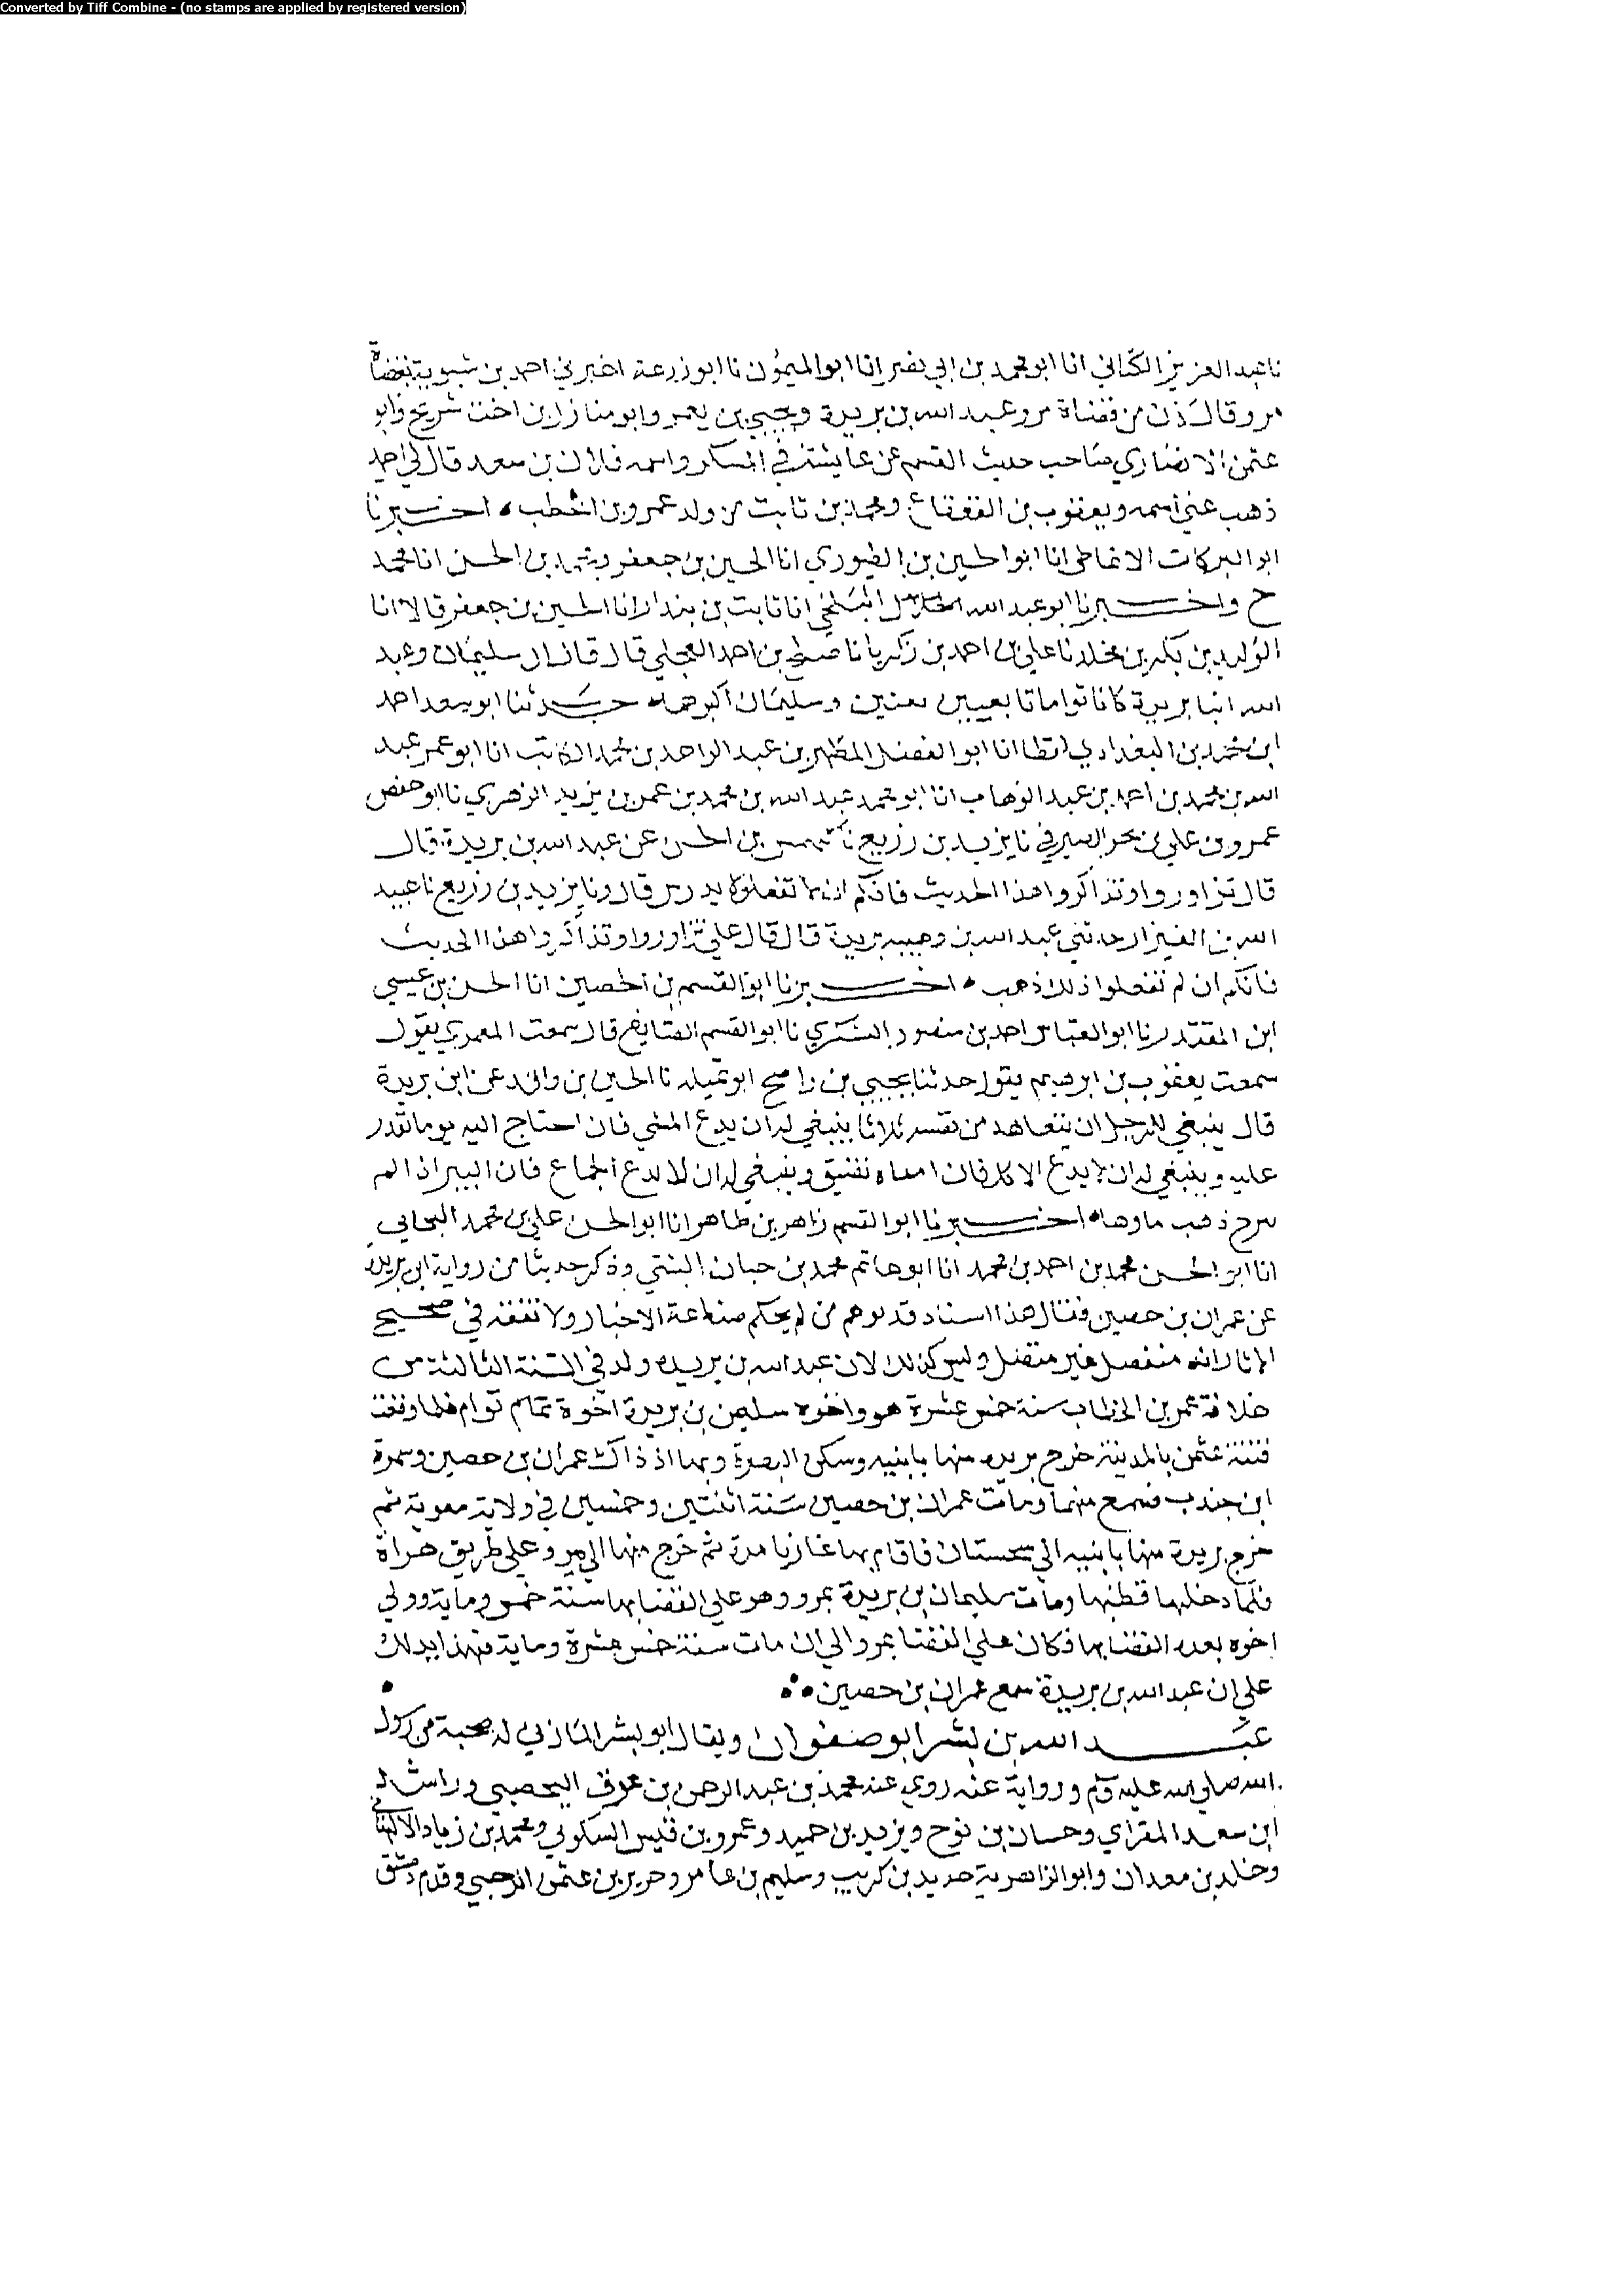 Converted by Tiff Combine - (no stamps are applied by registered version)
نا عبد العزيز الكتاني انا ابو محمد بن ابي نصر انا ابو الميمون نا ابو زرعة اخبرني احمد بن شبوية بقضاة
مرو وقال ذن من قضاة مرو عبد الله بن بريدة ويحيي بن يعمر وابو منازل ابن اخت شريح وابو
عثمن الانصاري صاحب حديث القسم عن عايشة في المسكر واسمه قال لي احمد
ذهب عني اسمه ويعقوب بن القعقاع ومحمد بن ثابت من ولد عمرو بن اخطب اخبرنا
ابو البركات الانماطي انا ابو الحسين بن الطيوري انا الحسين بن جعفر ومحمد بن الحسن انا محمد
ح واخبرنا ابو عبد الله البلخي انا ثابت بن بندار انا الحسين بن جعفر قالا انا
الوليد بن بكر بن مخلد نا علي بن احمد بن زكريا نا صالح بن احمد العجلي قال قال ال سليمان وعبد
الله ابنا بريدة كانا تواما تابعيين وسليمان اكبرهما حدثنا ابو سعد احمد
ابن محمد بن البغدادي انا ابو الفضل المطهر بن عبد الواحد بن محمد الكاتب انا ابو عمر عبد
الله بن محمد بن احمد بن عبد الوهاب انا ابو محمد عبد الله بن محمد بن عمر بن يزيد الزهري نا ابو حفص
عمرو بن علي بن بحر السيرفي نا يزيد بن زريع نا كهمس بن الحسن عن عبد الله بن بريدة قال
قال تزاوروا وتذاكروا هذا الحديث فانكم ان لا تفعلوا يدرس قال ونا يزيد بن زريع نا عبيد
الله بن العيزار حدثني عبد الله بن بريدة قال قال علي تزاوروا وتذاكروا هذا الحديث
فانكم ان لم تفعلوا ذلك ذهب اخبرنا ابو القسم بن الحصين انا الحسن بن عيسي
ابن المقتدر نا ابو العباس احمد بن منصور اليشكري نا ابو القسم الصايغ قال سمعت المعمري يقول
سمعت يعقوب بن ابرهيم يقول حدثنا يحيي بن واضح ابو تميله نا الحسين بن واقد عن ابن بريدة
قال ينبغي للرجل ان يتعاهد من نفسه ثلاثا ينبغي له ان يدع المشي فان احتاج اليه يوما قدر
عليه وينبغي له ان لا يدع الاكل فان امعاه تضيق وينبغي له ان لا يدع الجماع فان البير اذا لم
تنزح ذهب ماوها اخبرنا ابو القسم زاهر بن طاهر انا ابو الحسن علي بن محمد البحاثي
انا ابو الحسن محمد بن احمد بن محمد انا ابو حاتم محمد بن حبان البستي وذكر حديثا من رواية ابن بريدة
عن عمران بن حصين فقال هذا اسناد قد توهم من لم يحكم صناعة الاخبار ولا تفقه في صحيح
الاثار انه منفصل غير متصل وليس كذلك لان عبد الله بن بريدة ولد في السنة الثالثة من
خلافة عمر بن الخطاب سنة خمس عشرة هو واخوه سليمن بن بريدة اخوه تمام توام فلما وقعت
فتنة عثمن بالمدينة خرج بريده منها بابنيه وسكن البصرة وبها اذ ذاك عمران بن حصين وسمرة
ابن جندب فسمع منهما ومات عمران بن حصين سنة اثنتين وخمسين في ولاية معوية ثم
خرج بريدة منها بابنيه الي سجستان فاقام بها غازيا مدة ثم خرج منها الي مرو علي طريق هراة
فلما دخلها قطنها ومات سليمان بن بريدة بمرو وهو علي القضا بها سنة خمس وماية وولي
اخوه بعده القضا بها فكان علي القضا بمرو الي ان مات سنة خمس عشرة وماية فهذا يدلك
علي ان عبد الله بن بريدة سمع عمران بن حصين
عبد الله بن بشر ابو صفوان ويقال ابو بشر المازني له صحبة من رسول
الله صلي الله عليه وسلم ورواية عنه روي عنه محمد بن عبد الرحمن بن عوف اليحصبي وراشد
ابن سعد المقراي وحسان بن نوح ويزيد بن حميد وعمرو بن قيس السكوني ومحمد بن زياد الالهاني
وخلد بن معدان وابو الزاهرية حديد بن كريب وسليم بن عامر وحريز بن عثمن الرحبي وقدم دمشق